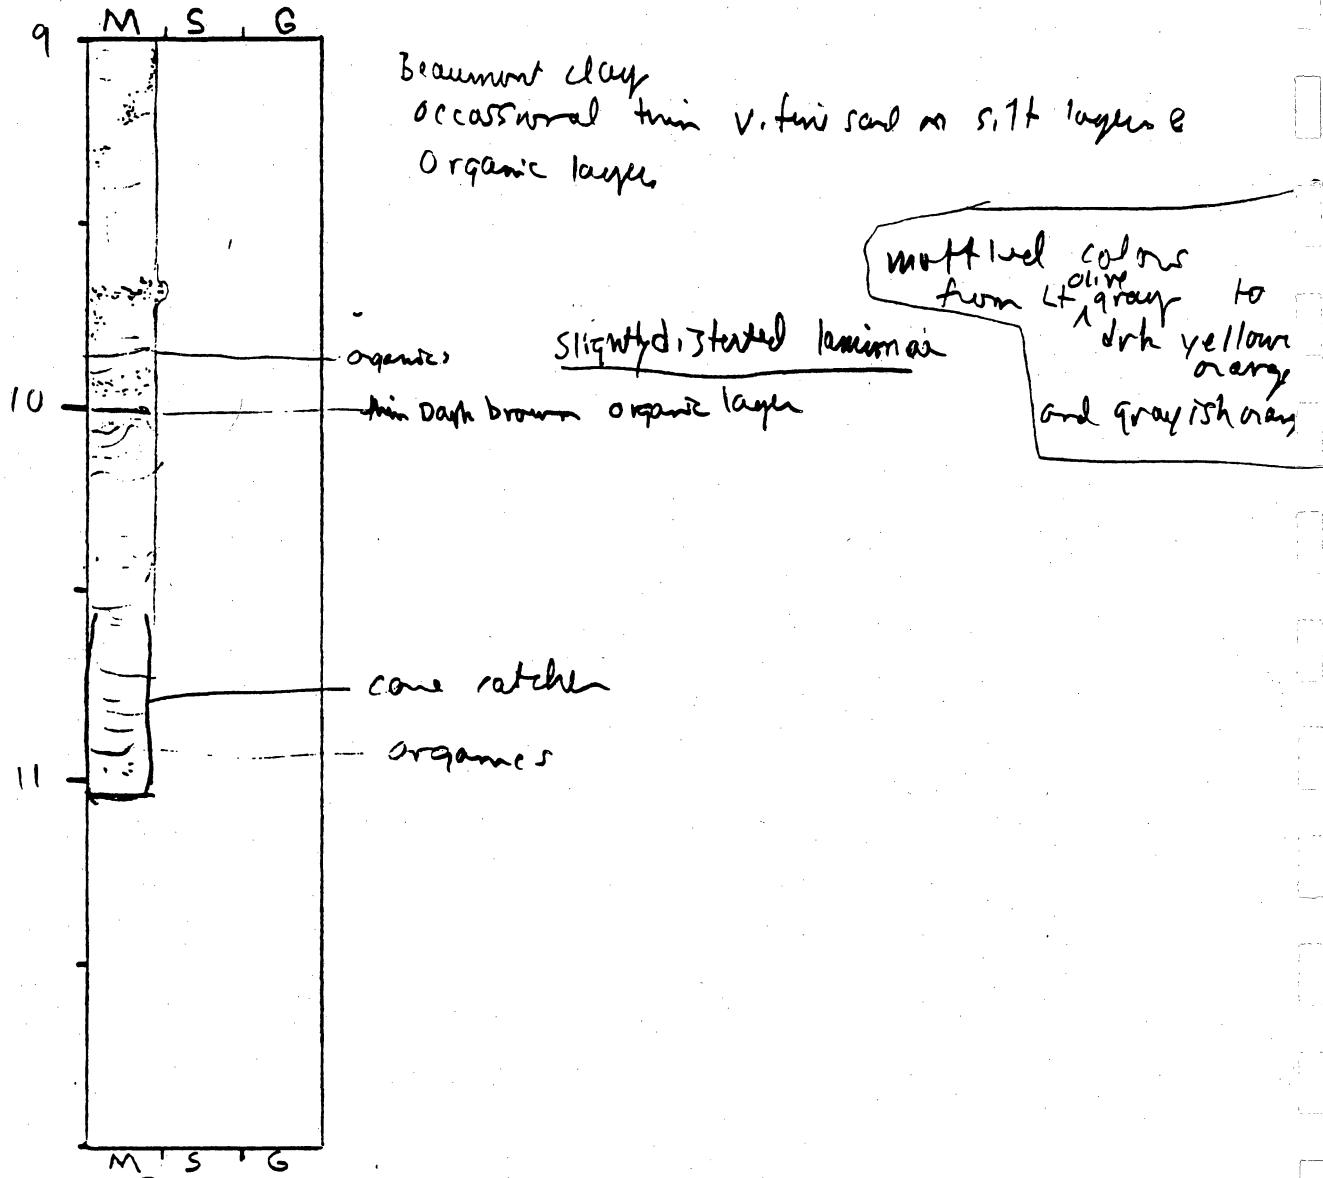 M S G
9
Beaumont clay
occassional thin v. fine sand or silt layers &
Organic layers
mottled colors
from Lt olive gray to
drk yellow
orange
and grayish orang
organics
slightly distorted laminae
10
thin Dark brown organic layer
core catcher
organics
11
M S G